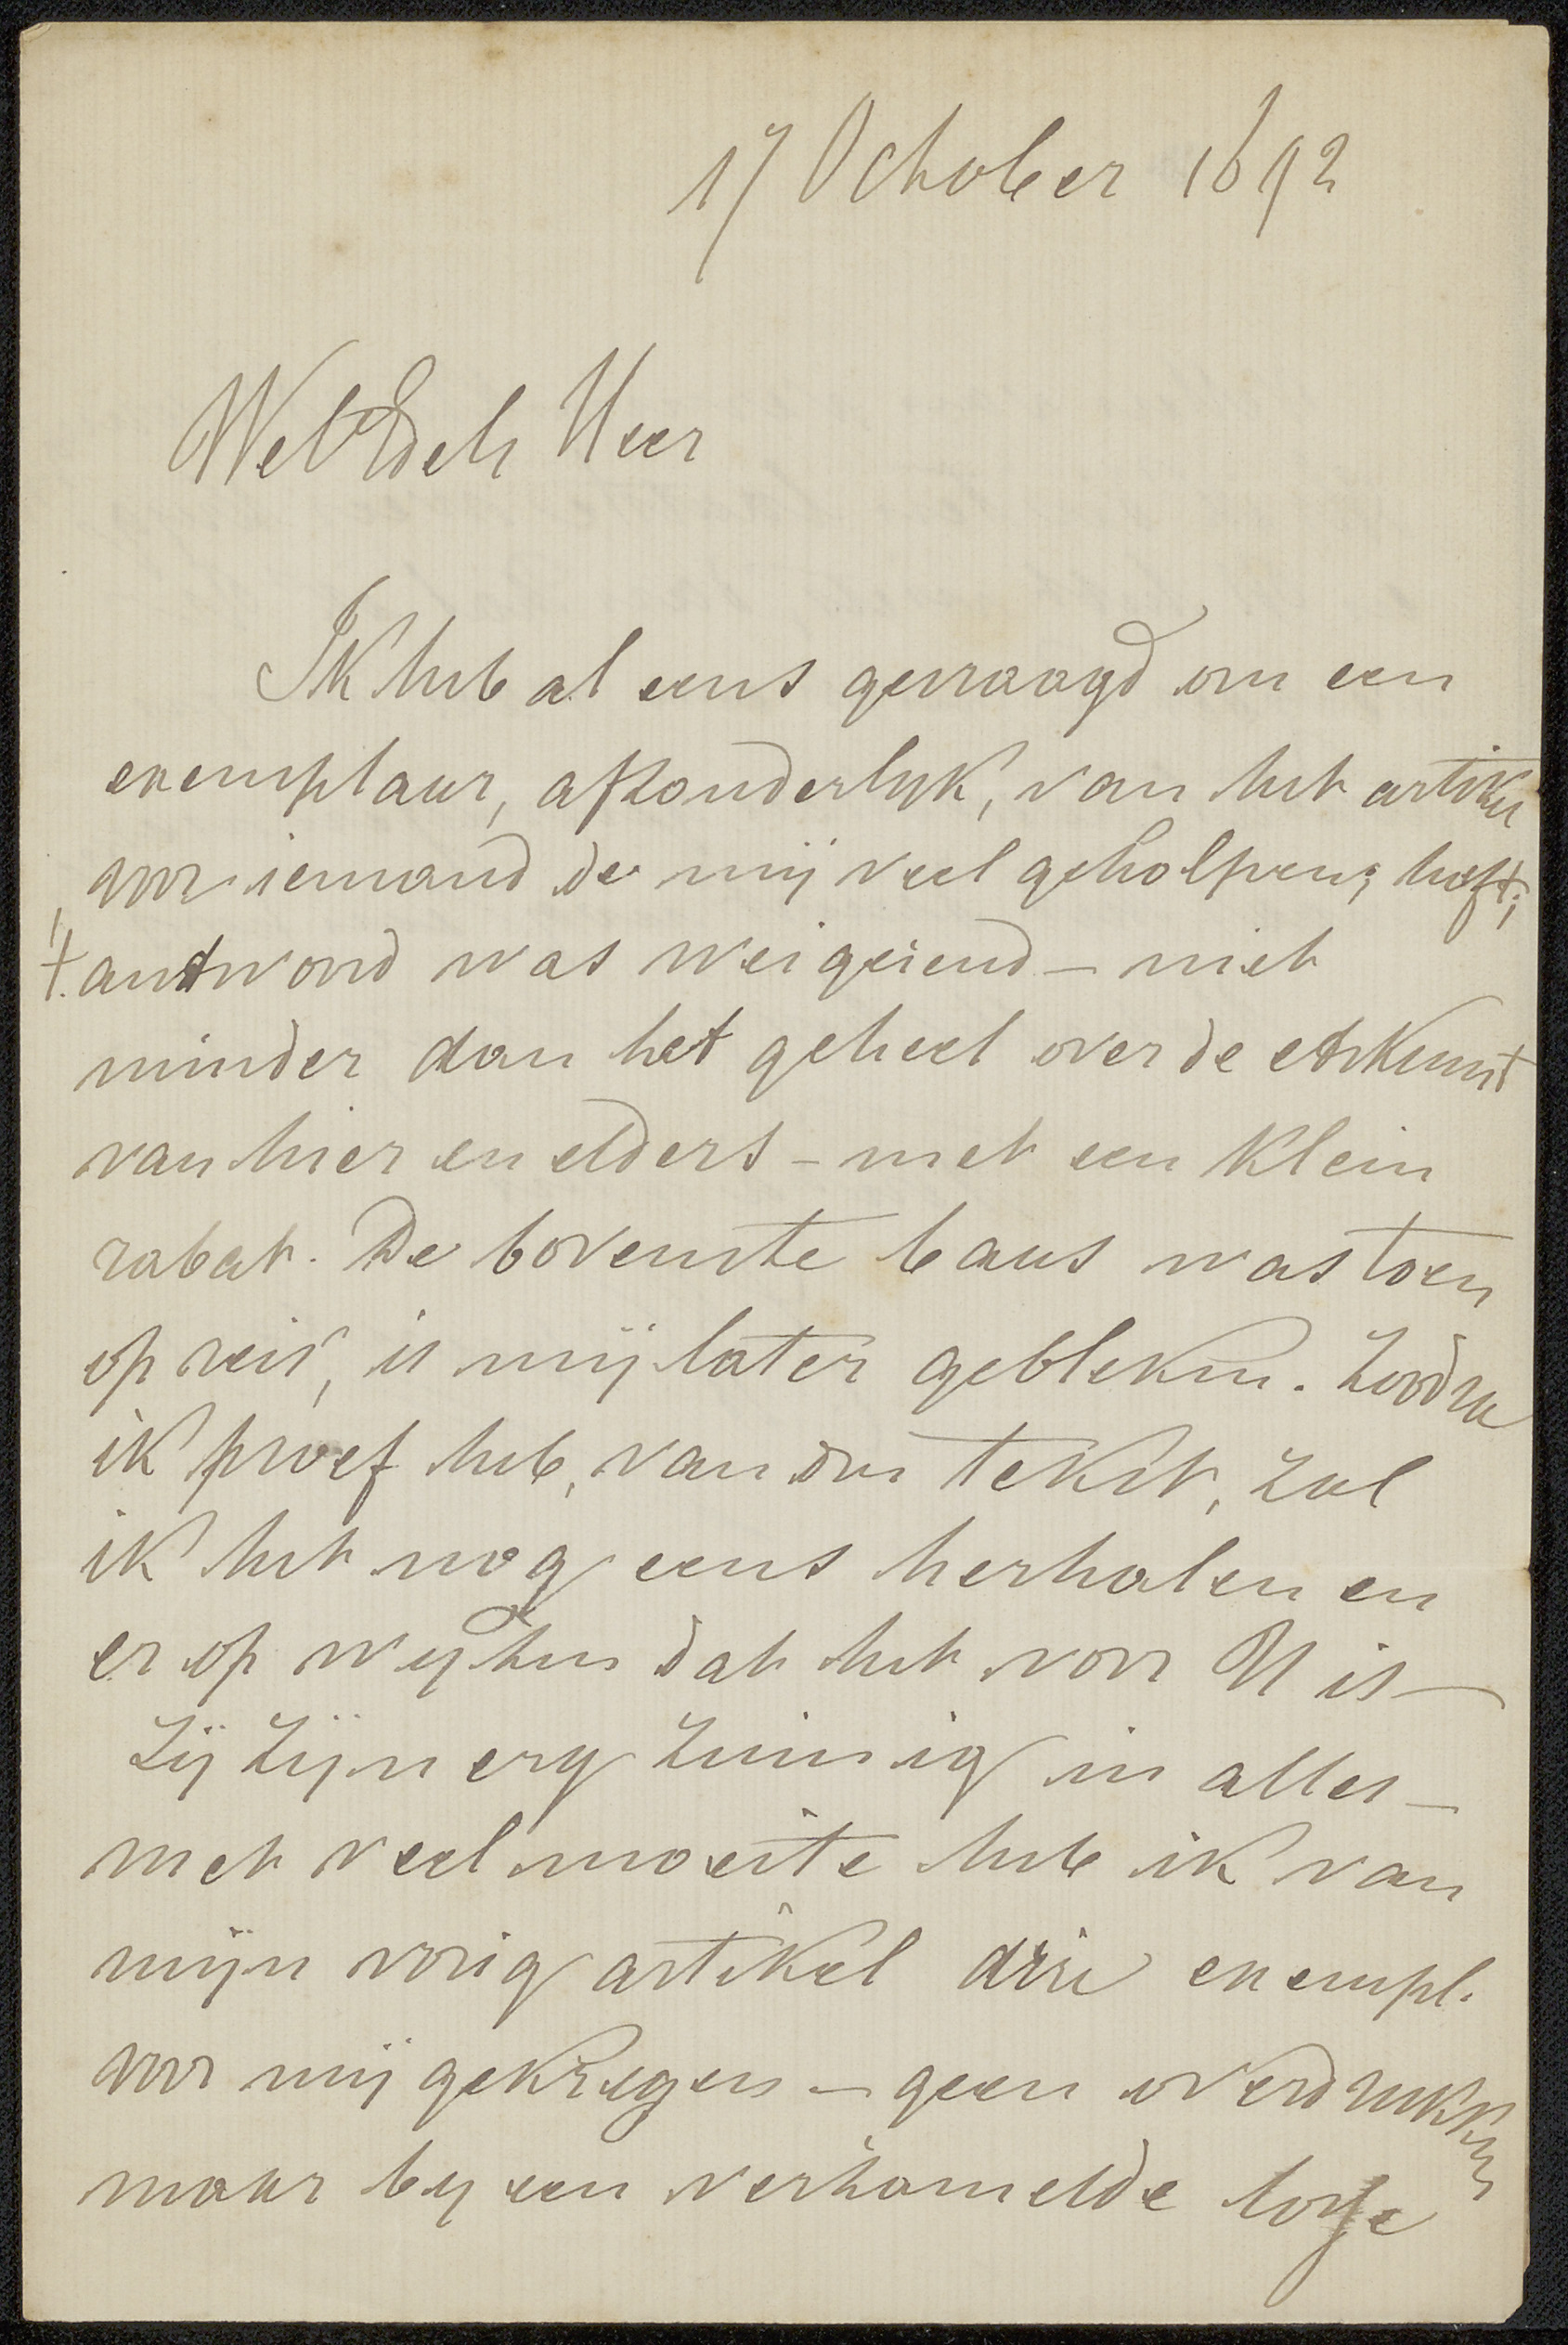 17 October 1892
WelEdele Heer
Ik heb al eens gevraagd om een
exemplaar, afzonderlijk, van het artikel
voor iemand de mij veel geholpen; heeft;
't antwoord was weigerend – niet
minder dan het geheel over de etskunst
van hier en elders – met een klein
rabat. De bovenste baas was toen
op reis, is mij later gebleken. Zoodra
ik proef heb, van den tekst, zal
ik het nog eens herhalen en
er op wijzen dat het voor U is –
Zij zijn erg zuinig in alles –
met veel moeite heb ik van
mijn vorig artikel drie exempl.
voor mij gekregen – geen overdrukken
maar by een verzamelde losse